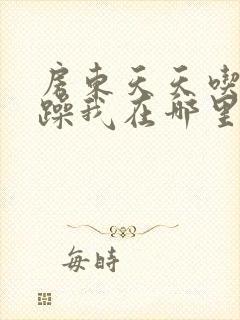 房东天天喫
躁我在哪里
每時